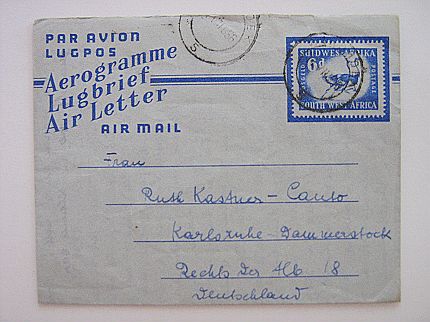 PAR AVION
LUGPOS
Aerogramme
Lugbrief
Air Letter
AIR MAIL
SUIDWES-AFRIKA
6d
POSTAGE
SOUTH WEST AFRICA
Frau
Ruth Kastner-Canto
Karlsruhe-Dammerstock
Rechts der Alb 18
Deutschland